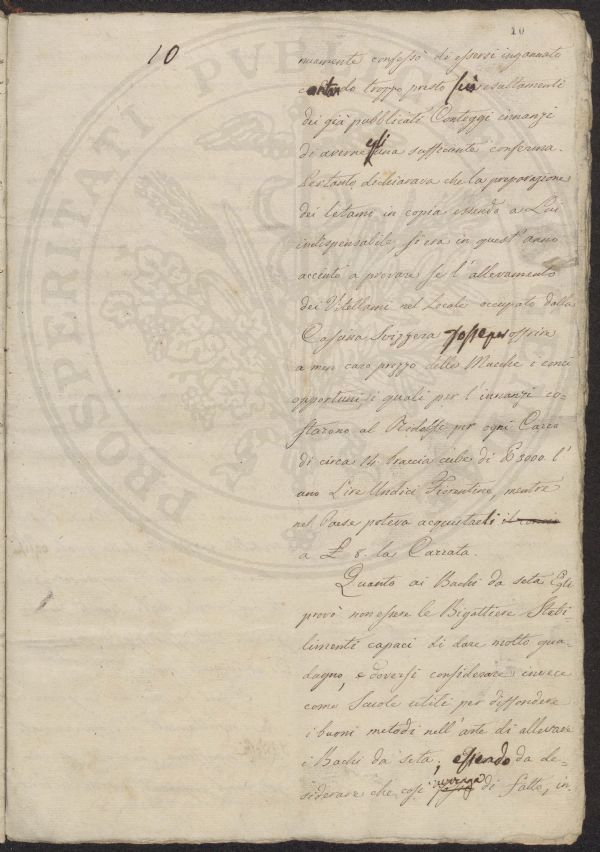 10
10
PROSPERITATI PVBLICAE
nuamente confessò di essersi ingannato
cantando troppo presto sui resultamenti
dei già pubblicati Conteggi innanzi
di averne egli una sufficiente conferma.
Pertanto dichiarava che la preparazione
dei letami in copia essendo a Lui
indispensabile, si era in quest'anno
accinto a provare se l'allevamento
dei Vitellami nel Locale occupato dalla
Cascina Svizzera fosse per offrire
a men caro prezzo delle Mucche i conci
opportuni, i quali per l'innanzi co-
starono al Ridolfi per ogni Carro
di circa 14. braccia cube di ℔ 3000. l'
uno Lire Undici Fiorentine, mentre
nel Paese poteva acquistarli
a £ 8. la Carrata.
Quanto ai Bachi da seta Egli
provò non essere le Bigattiere Stabi-
limenti capaci di dare molto gua-
dagno, e doversi considerare invece
come Scuole utili per diffondere
i buoni metodi nell'arte di allevare
i Bachi da seta; essendo da de-
siderare che così avvenga di fatto, in-